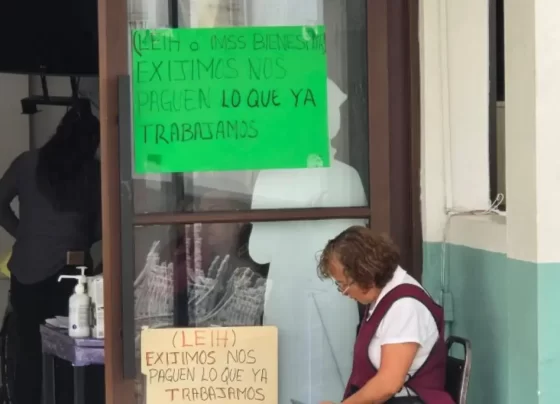 (LEIH o IMSS BIENESTAR)
EXIJIMOS NOS
PAGUEN LO QUE YA
TRABAJAMOS
(LEIH)
EXIJIMOS NOS
PAGUEN LO QUE YA
TRABAJAMOS